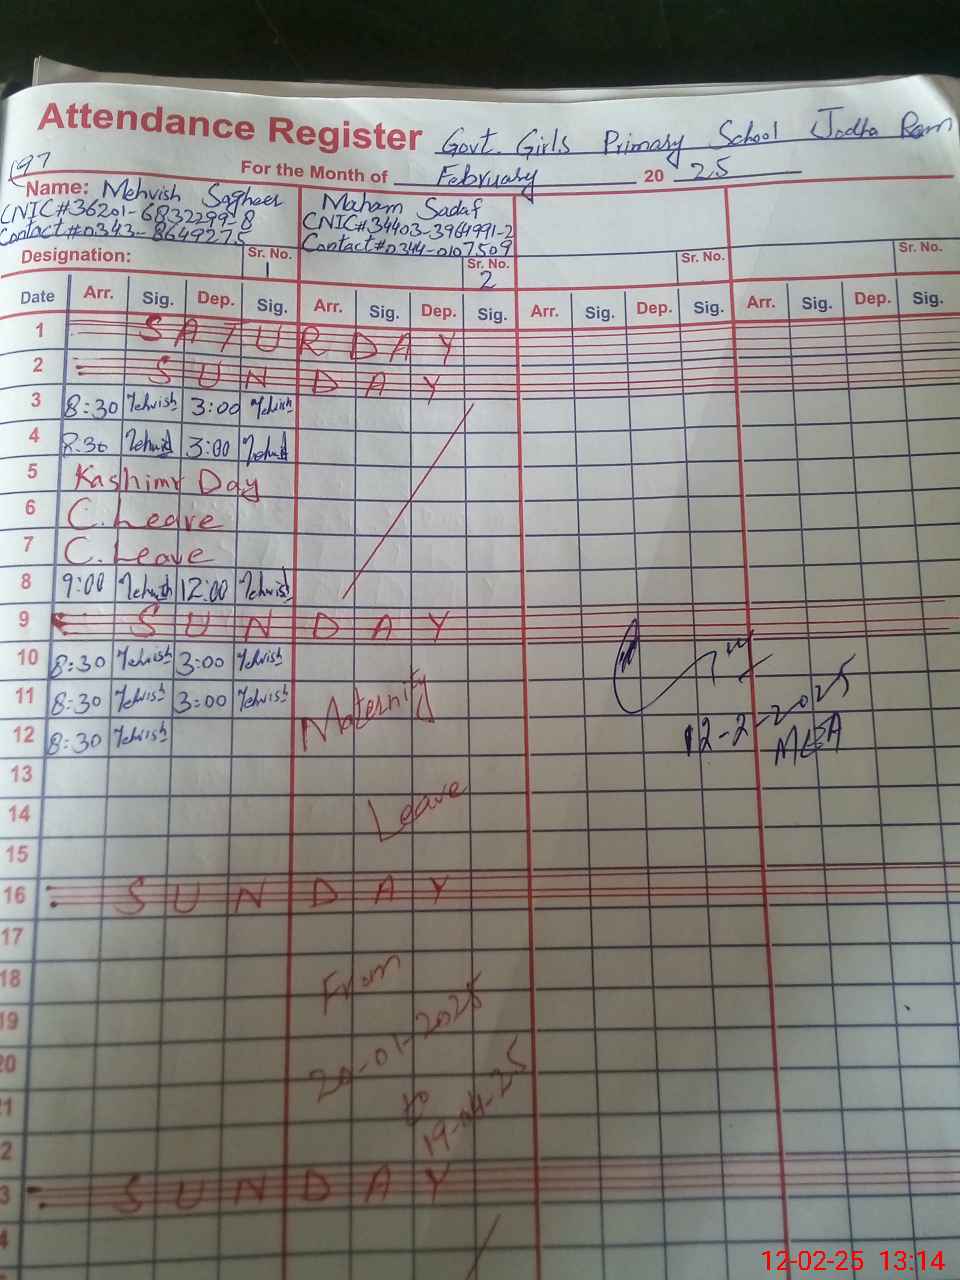 Attendance Register Govt. Girls Primary School Jodha Ram
197
For the Month of February 20 25
Name: Mehvish Sagheer
CNIC#36201-6832299-8
Contact#0343-8649275
Maham Sadaf
CNIC#34403-3964991-2
Contact#0344-0107509
Designation: Sr. No. Sr. No. Sr. No. Sr. No.
1 2
Date Arr. Sig. Dep. Sig. Arr. Sig. Dep. Sig. Arr. Sig. Dep. Sig. Arr. Sig. Dep. Sig.
1 SATURDAY
2 SUNDAY
3 8:30 Mehvish 3:00 Mehvish
4 8:30 Mehvish 3:00 Mehvish
5 Kashimr Day
6 C. Leave
7 C. Leave
8 9:00 Mehvish 12:00 Mehvish
9 SUNDAY
10 8:30 Mehvish 3:00 Mehvish
11 8:30 Mehvish 3:00 Mehvish
12 8:30 Mehvish
Maternity
12-2-2025
MEA
13
14 Leave
15
16 SUNDAY
17
18 From
19
20 20-01-2025
1 to
2 19-04-25
3 SUNDAY
4
12-02-25 13:14